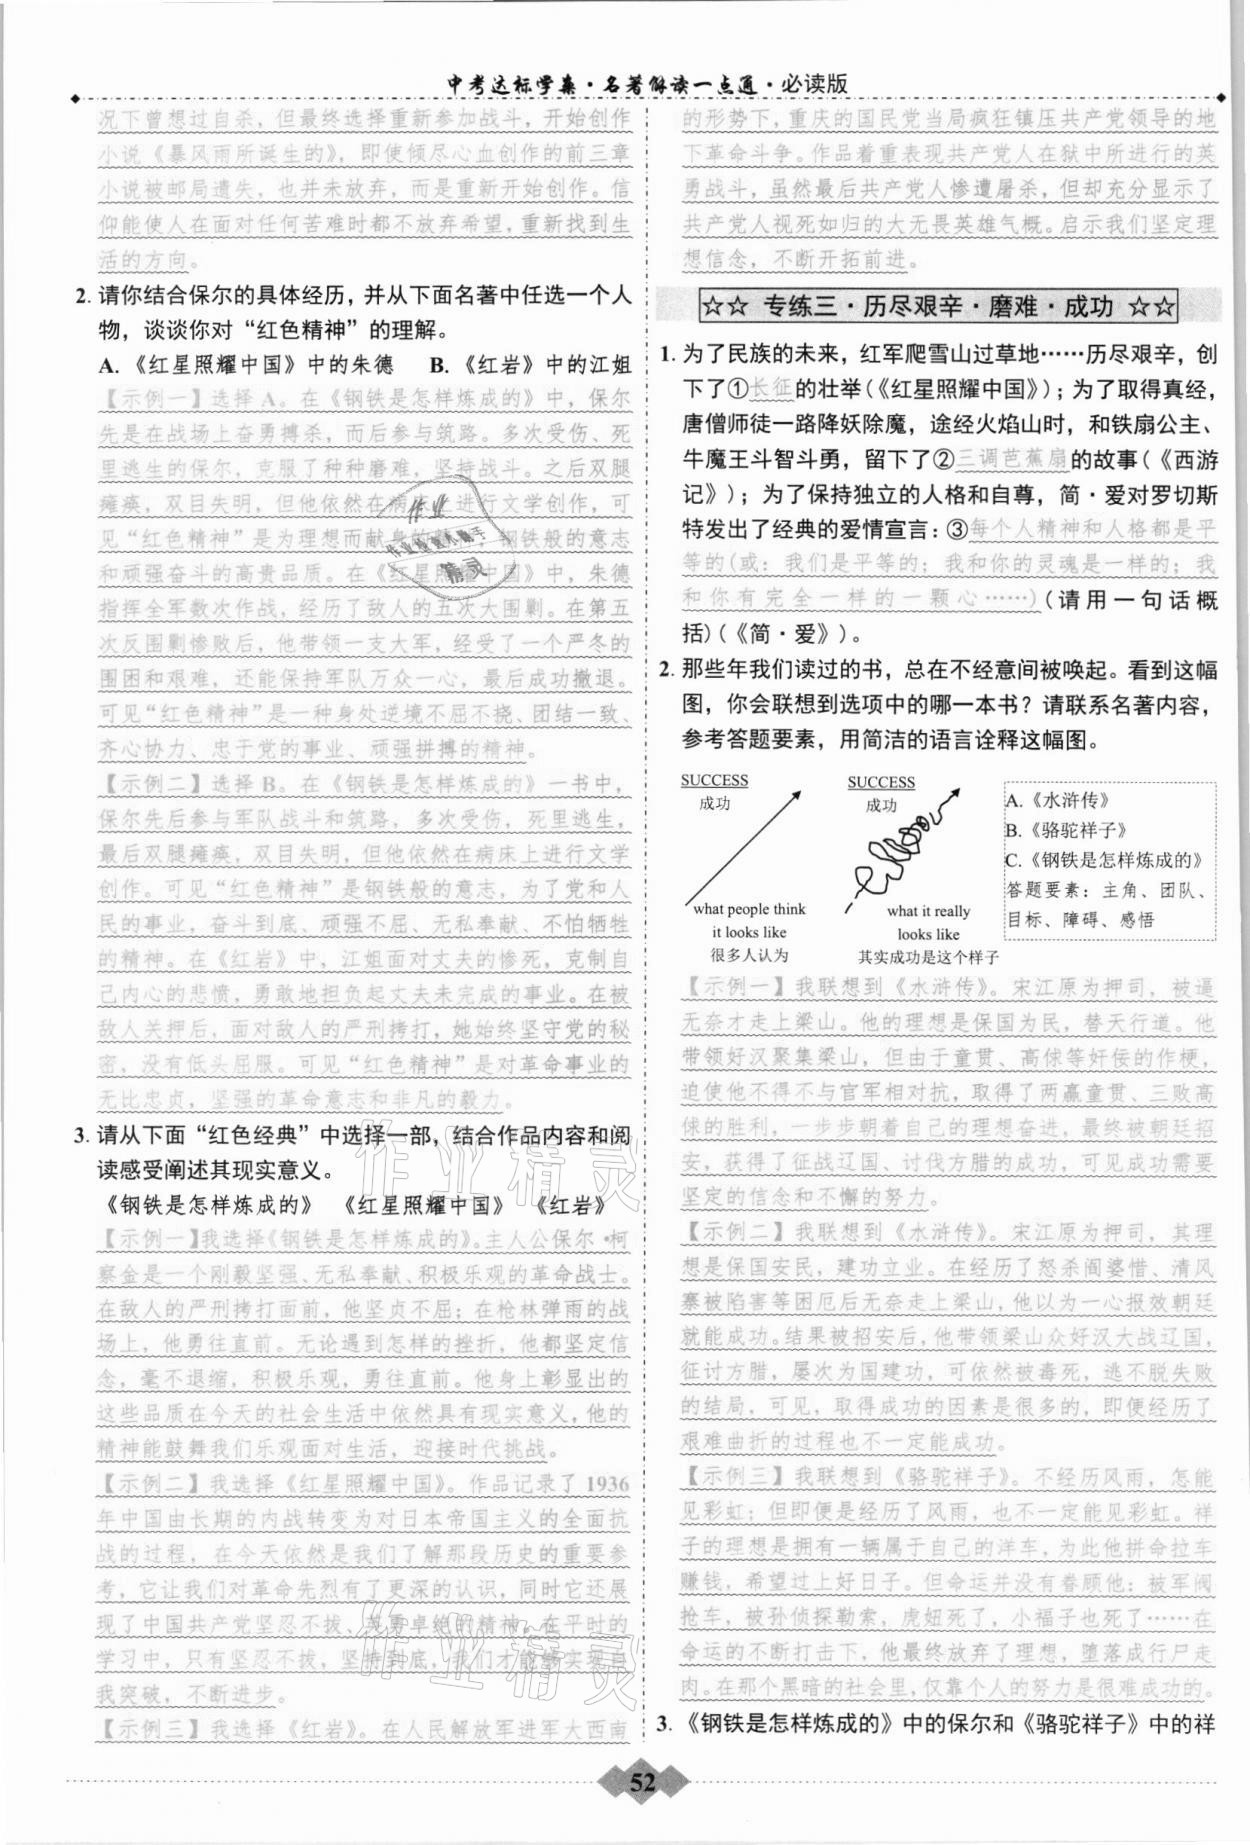 中考达标学案·名著解读一点通·必读版
况下曾想过自杀，但最终选择重新参加战斗，开始创作
小说《暴风雨所诞生的》，即使倾尽心血创作的前三章
小说被邮局遗失，也并未放弃，而是重新开始创作。信
仰能使人在面对任何苦难时都不放弃希望，重新找到生
活的方向。
2. 请你结合保尔的具体经历，并从下面名著中任选一个人
物，谈谈你对“红色精神”的理解。
A.《红星照耀中国》中的朱德 B.《红岩》中的江姐
【示例一】选择 A。在《钢铁是怎样炼成的》中，保尔
先是在战场上奋勇搏杀，而后参与筑路。多次受伤、死
里逃生的保尔，克服了种种磨难，坚持战斗。之后双腿
瘫痪，双目失明，但他依然在病床上进行文学创作，可
见“红色精神”是为理想而献身的精神，钢铁般的意志
和顽强奋斗的高贵品质。在《红星照耀中国》中，朱德
指挥全军数次作战，经历了敌人的五次大围剿。在第五
次反围剿惨败后，他带领一支大军，经受了一个严冬的
围困和艰难，还能保持军队万众一心，最后成功撤退。
可见“红色精神”是一种身处逆境不屈不挠、团结一致、
齐心协力、忠于党的事业、顽强拼搏的精神。
【示例二】选择 B。在《钢铁是怎样炼成的》一书中，
保尔先后参与军队战斗和筑路，多次受伤，死里逃生，
最后双腿瘫痪，双目失明，但他依然在病床上进行文学
创作。可见“红色精神”是钢铁般的意志，为了党和人
民的事业，奋斗到底、顽强不屈、无私奉献、不怕牺牲
的精神。在《红岩》中，江姐面对丈夫的惨死，克制自
己内心的悲愤，勇敢地担负起丈夫未完成的事业。在被
敌人关押后，面对敌人的严刑拷打，她始终坚守党的秘
密，没有低头屈服。可见“红色精神”是对革命事业的
无比忠贞，坚强的革命意志和非凡的毅力。
3. 请从下面“红色经典”中选择一部，结合作品内容和阅
读感受阐述其现实意义。
《钢铁是怎样炼成的》 《红星照耀中国》 《红岩》
【示例一】我选择《钢铁是怎样炼成的》。主人公保尔·柯
察金是一个刚毅坚强、无私奉献、积极乐观的革命战士。
在敌人的严刑拷打面前，他坚贞不屈；在枪林弹雨的战
场上，他勇往直前。无论遇到怎样的挫折，他都坚定信
念，毫不退缩，积极乐观，勇往直前。他身上彰显出的
这些品质在今天的社会生活中依然具有现实意义，他的
精神能鼓舞我们乐观面对生活，迎接时代挑战。
【示例二】我选择《红星照耀中国》。作品记录了 1936
年中国由长期的内战转变为对日本帝国主义的全面抗
战的过程，在今天依然是我们了解那段历史的重要参
考，它让我们对革命先烈有了更深的认识，同时它还展
现了中国共产党坚忍不拔、英勇卓绝的精神。在平时的
学习中，只有坚忍不拔，坚持到底，我们才能够实现自
我突破，不断进步。
【示例三】我选择《红岩》。在人民解放军进军大西南
的形势下，重庆的国民党当局疯狂镇压共产党领导的地
下革命斗争。作品着重表现共产党人在狱中所进行的英
勇战斗，虽然最后共产党人惨遭屠杀，但却充分显示了
共产党人视死如归的大无畏英雄气概。启示我们坚定理
想信念，不断开拓前进。
☆☆ 专练三·历尽艰辛·磨难·成功 ☆☆
1. 为了民族的未来，红军爬雪山过草地……历尽艰辛，创
下了①长征的壮举(《红星照耀中国》)；为了取得真经，
唐僧师徒一路降妖除魔，途经火焰山时，和铁扇公主、
牛魔王斗智斗勇，留下了②三调芭蕉扇的故事(《西游
记》)；为了保持独立的人格和自尊，简·爱对罗切斯
特发出了经典的爱情宣言：③每个人精神和人格都是平
等的(或：我们是平等的；我和你的灵魂是一样的；我
和你有完全一样的一颗心……)(请用一句话概
括)(《简·爱》)。
2. 那些年我们读过的书，总在不经意间被唤起。看到这幅
图，你会联想到选项中的哪一本书？请联系名著内容，
参考答题要素，用简洁的语言诠释这幅图。
SUCCESS
成功
what people think
it looks like
很多人认为
SUCCESS
成功
what it really
looks like
其实成功是这个样子
A.《水浒传》
B.《骆驼祥子》
C.《钢铁是怎样炼成的》
答题要素：主角、团队、
目标、障碍、感悟
【示例一】我联想到《水浒传》。宋江原为押司，被逼
无奈才走上梁山。他的理想是保国为民，替天行道。他
带领好汉聚集梁山，但由于童贯、高俅等奸佞的作梗，
迫使他不得不与官军相对抗，取得了两赢童贯、三败高
俅的胜利，一步步朝着自己的理想奋进，最终被朝廷招
安，获得了征战辽国、讨伐方腊的成功，可见成功需要
坚定的信念和不懈的努力。
【示例二】我联想到《水浒传》。宋江原为押司，其理
想是保国安民，建功立业。在经历了怒杀阎婆惜、清风
寨被陷害等困厄后无奈走上梁山，他以为一心报效朝廷
就能成功。结果被招安后，他带领梁山众好汉大战辽国，
征讨方腊，屡次为国建功，可依然被毒死，逃不脱失败
的结局，可见，取得成功的因素是很多的，即便经历了
艰难曲折的过程也不一定能成功。
【示例三】我联想到《骆驼祥子》。不经历风雨，怎能
见彩虹；但即便是经历了风雨，也不一定能见彩虹。祥
子的理想是拥有一辆属于自己的洋车，为此他拼命拉车
赚钱，希望过上好日子。但命运并没有眷顾他：被军阀
抢车，被孙侦探勒索，虎妞死了，小福子也死了……在
命运的不断打击下，他最终放弃了理想，堕落成行尸走
肉。在那个黑暗的社会里，仅靠个人的努力是很难成功的。
3.《钢铁是怎样炼成的》中的保尔和《骆驼祥子》中的祥
52
作业
精灵
作业精灵
作业精灵